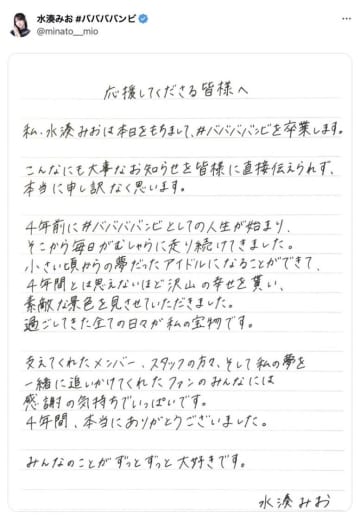 水湊みお #ババババンビ
@minato__mio
応援してくださる皆様へ
私、水湊みおは本日をもちまして、#ババババンビを卒業します。
こんなにも大事なお知らせを皆様に直接伝えられず、
本当に申し訳なく思います。
4年前に#ババババンビとしての人生が始まり、
そこから毎日がむしゃらに走り続けてきました。
小さい頃からの夢だったアイドルになることができて、
4年間とは思えないほど沢山の幸せを貰い、
素敵な景色を見させていただきました。
過ごしてきた全ての日々が私の宝物です。
支えてくれたメンバー、スタッフの方々、そして私の夢を
一緒に追いかけてくれたファンのみんなには
感謝の気持ちでいっぱいです。
4年間、本当にありがとうございました。
みんなのことがずっとずっと大好きです。
水湊みお